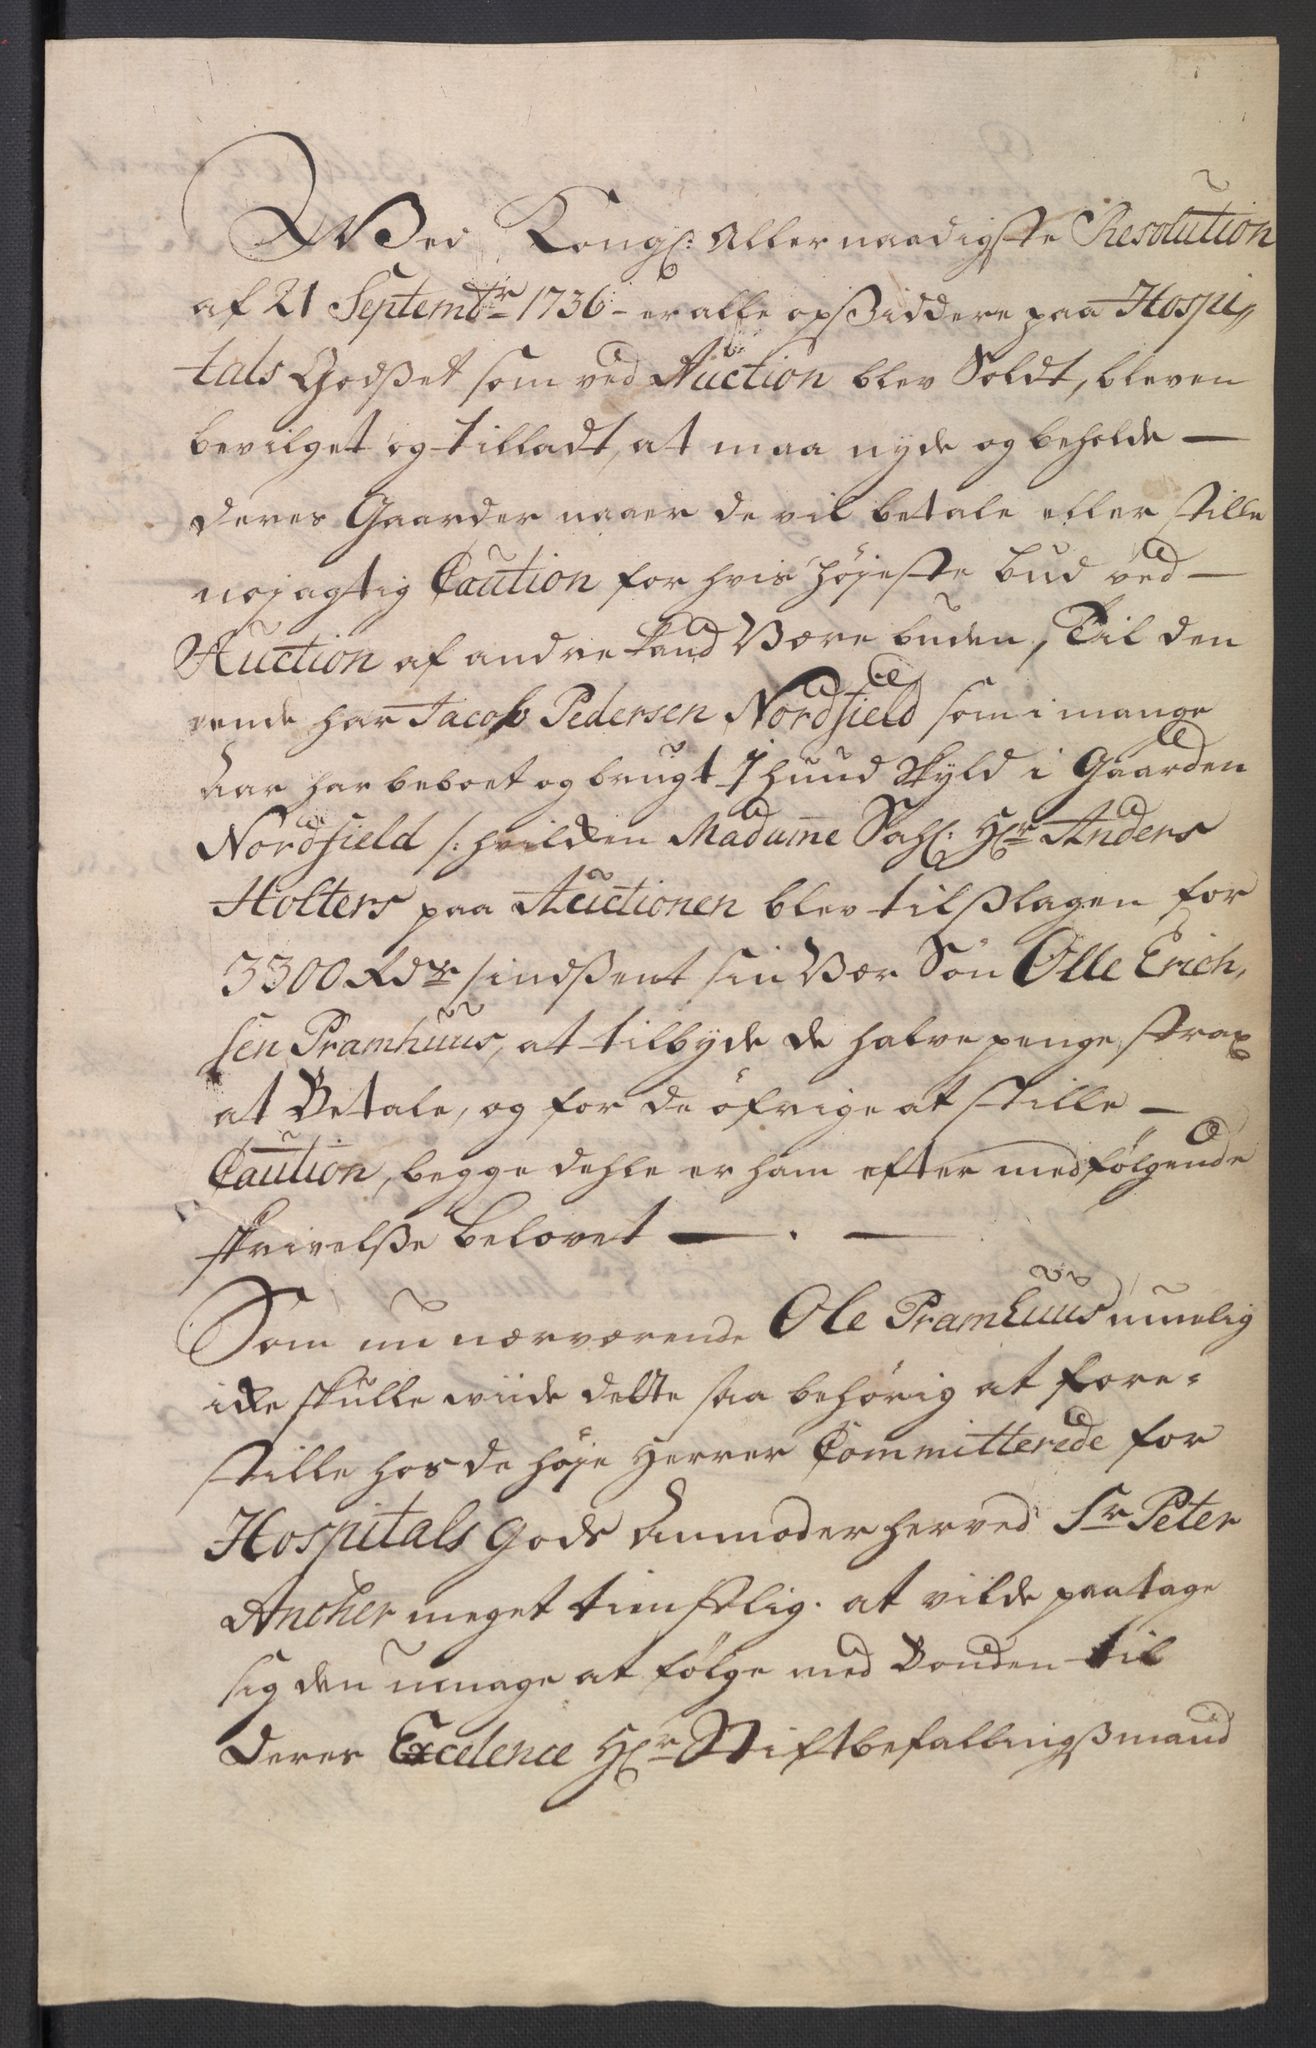 Ved Kongl: Allernaadigste Resolution
af 21 Septembr 1736 - er alle opßiddere paa Hospi„
tals Godßet som ved Auction blev Soldt, bleven
bevilget og tilladt, at maa nyde og beholde —
deres Gaarder naaer de vil betale eller stille
nojagtig Caution for hvis højeste bud ved —
Auction af andre kand Være buden, Til den
ende har Jacob Pedersen Nordfield som i mange
Aar har beboet og brugt 1 huud skyld i Gaarden
Nordfield /: hvilken Madame Sahl: Hr Anders
Holters paa Auctionen blev tilßlagen for
3300 Rdr indßent sin Vær Søn Olle Erich,
sen Pramhuus, at tilbyde de halve penge strax
at Betale, og for de öfrige at stille —
Caution, begge dehle er ham efter medfølgende
skrivelße belovet — . —
Som nu nærværende Ole Pramhuus muelig
ikke skulle viide dette saa behørig at fore=
stille hos de høje Herrer Committerede for
Hospitals Gods Anmoder herved Sr Peter
Ancher meget tienstlig. at vilde paatage
sig den umage at følge med Bonden til
Deres Excelence Hr Stiftbefallingßmand